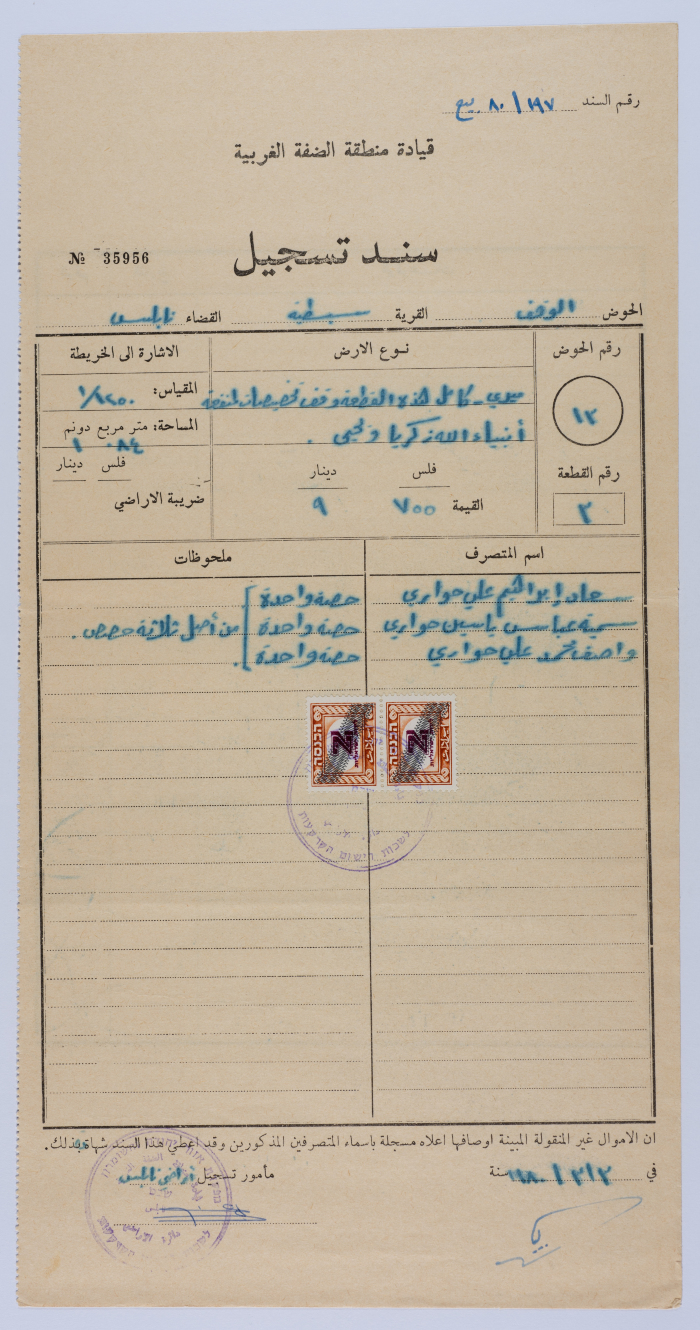 رقم السند ١٩٧/٨٠ بيع
قيادة منطقة الضفة الغربية
سند تسجيل
№ 35956
الحوض الوقف القرية سبسطية القضاء نابلس
رقم الحوض
١٢
رقم القطعة
٢
نوع الارض
ميري - كامل هذه القطعة وقف تخصيصات لمنفعة
أنبياء الله زكريا ويحيى .
فلس دينار
القيمة ٧٠٠ ٩
الاشارة الى الخريطة
المقياس: ١/١٢٥٠
المساحة: متر مربع دونم
٠٨٤ ١
فلس دينار
ضريبة الاراضي
اسم المتصرف ملحوظات
ابراهيم علي حواري حصة واحدة
سمية عباس ياسين حواري حصة واحدة من أصل ثلاثة حصص .
واصف محمد علي حواري حصة واحدة .
הכנסה
הכנסה
לשכת רישום מקרקעין
ان الاموال غير المنقولة المبينة اوصافها اعلاه مسجلة باسماء المتصرفين المذكورين وقد اعطي هذا السند شهادة بذلك.
في ٢/٣/١٩٨٠ سنة
مأمور تسجيل أراضي نابلس
دائرة الاراضي